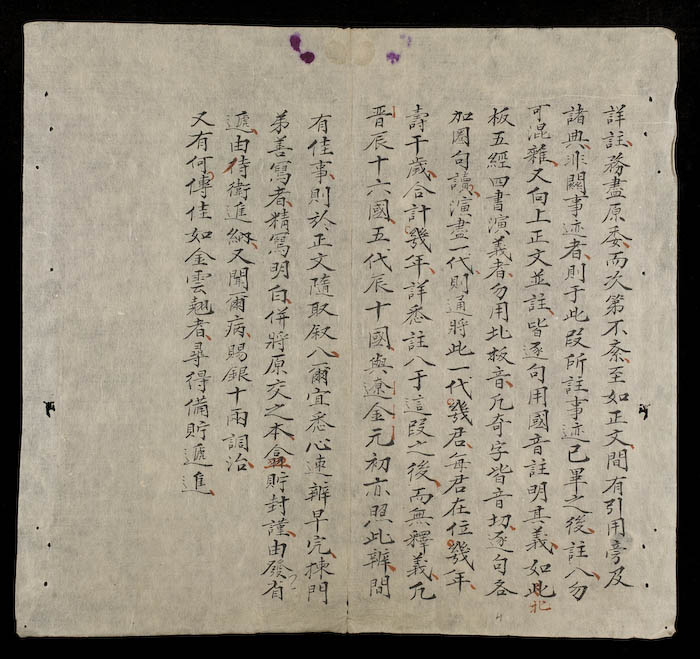 詳註務盡原委而次第不紊至如正文間有引用旁及
諸典非關事迹者則于此段所註事迹已畢之後註入勿
可混雜又向上正文並註皆逐句用國音註明其義如此
北
板五經四書演義者勿用北板音凡奇字皆音切逐句各
加圈句讀演盡一代則通將此一代幾君每君在位幾年
壽干歲合計幾年詳悉註入于這段之後而無釋義凡
晋辰十六國五代辰十國與遼金元初亦照此辨間
有佳事則於正文隨取叙入爾宜悉心速辨早完棟門
弟善寫者精寫明白併將原交之本盒貯封謹由廢省
遞由侍衛進納又聞爾病賜銀十兩調治
又有何傳佳如金雲翹者尋得備貯遞進